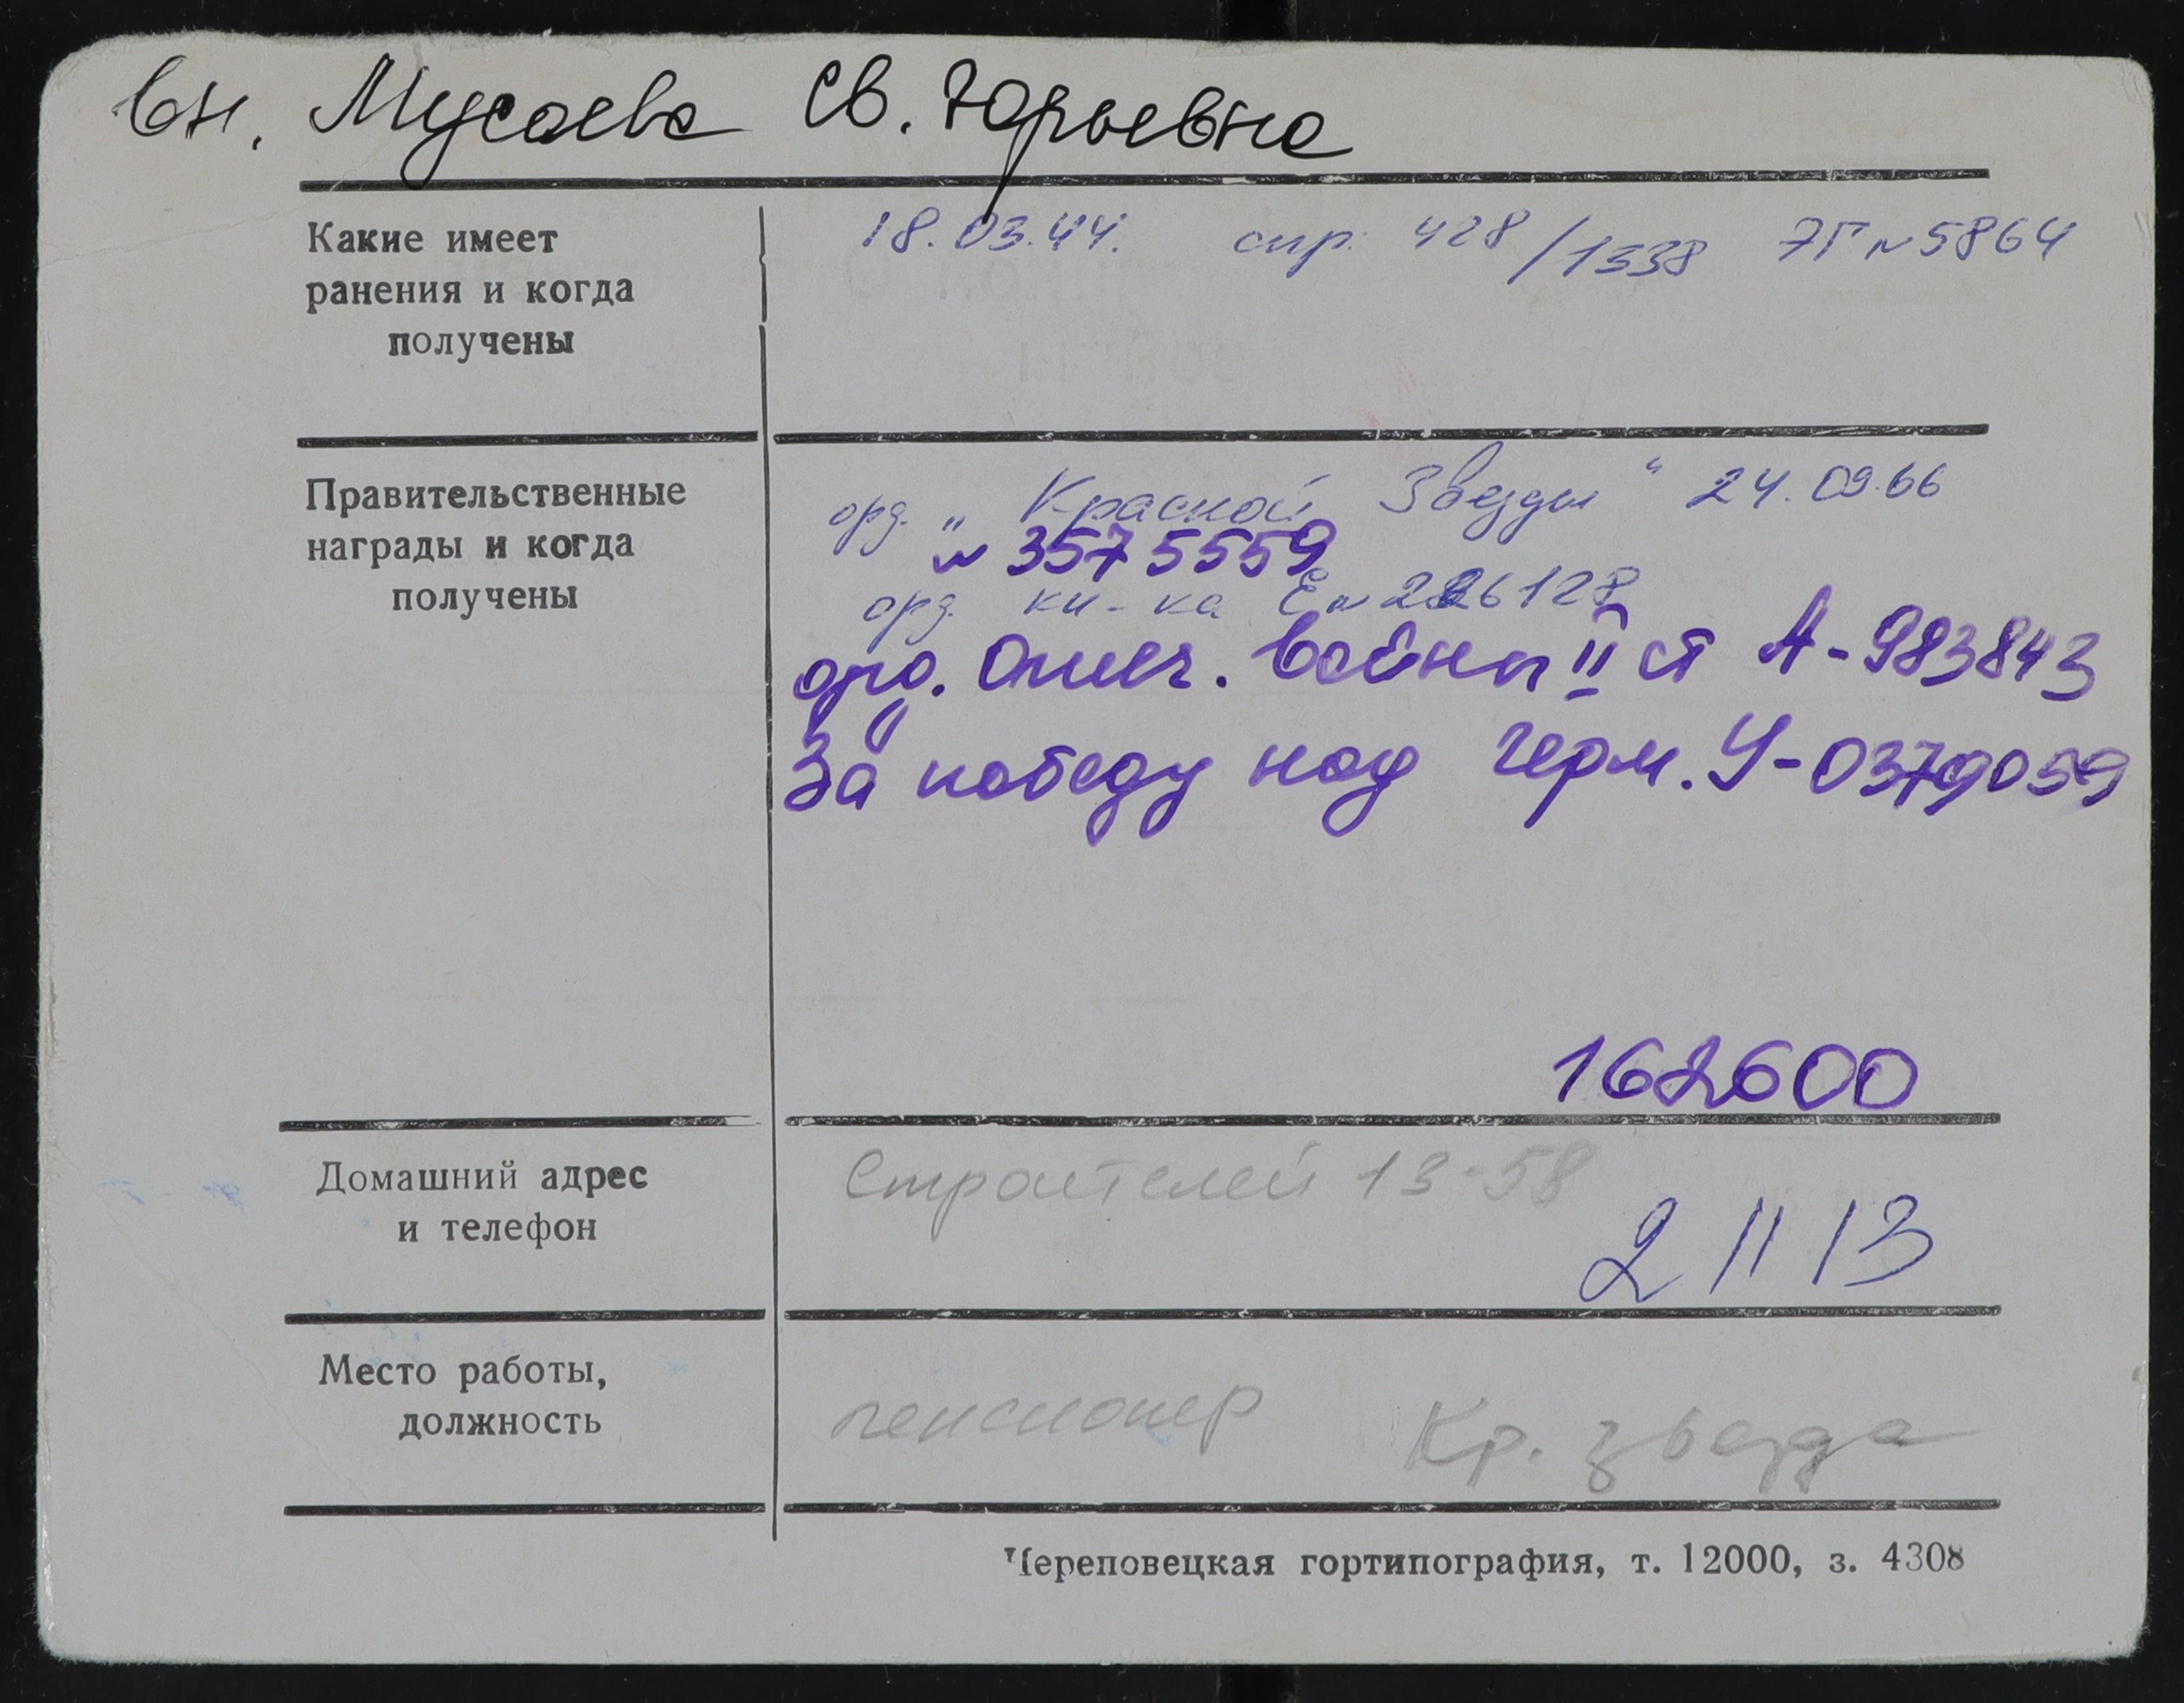 вн. Мусаева Св. Юрьевна
Какие имеет
ранения и когда
получены
18.03.44. спр. 428/1338 7Г №5864
Правительственные
награды и когда
получены
орд. „Красной Звезды“ 24.09.66
№ 3575559
орд. кн-ка Е № 226128
орд. Отеч. войны II ст А-983843
"За победу над Герм. У-0379059
162600
Домашний адрес
и телефон
Строителей 13-58
2 11 13
Место работы,
должность
пенсионер Кр. звезда
Череповецкая гортипография, т. 12000, з. 4308